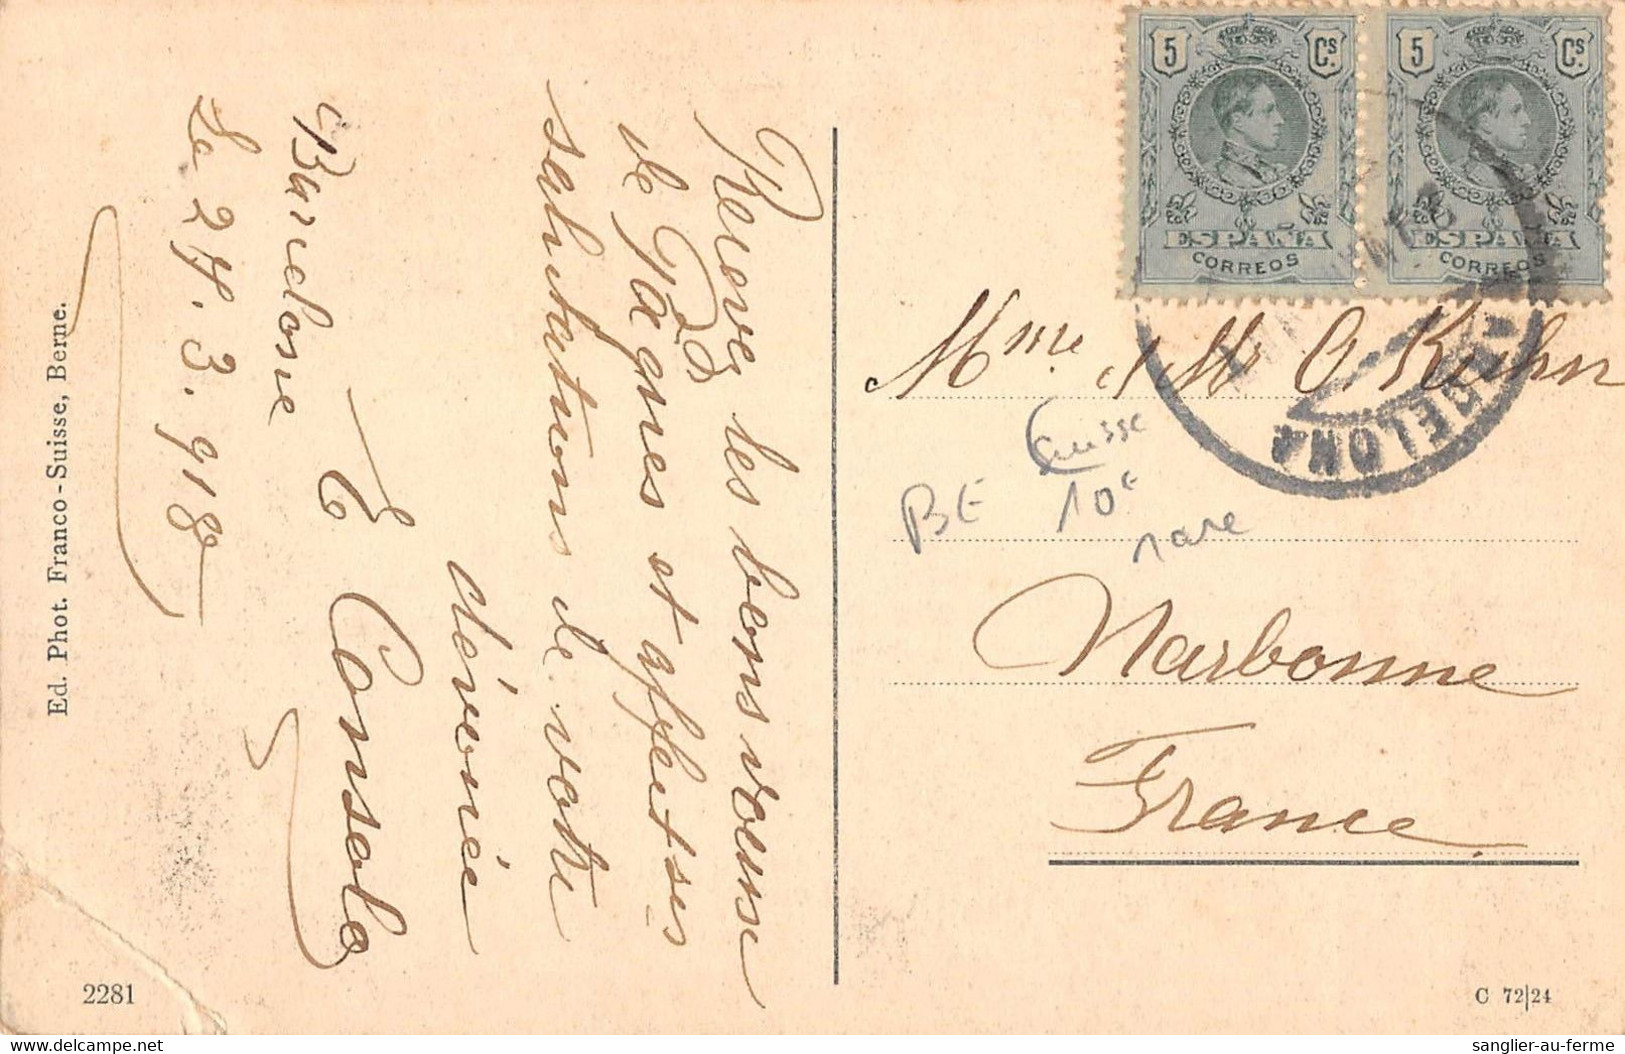 5 Cs
ESPAÑA
CORREOS
5 Cs
ESPAÑA
CORREOS
Mme & Mr O Kuhn
Suisse
BE 10€
rare
Narbonne
France
C 72|24
Recevez les bons voeux
de Pâques et affectses
salutations de votre
dévouée
E Consolo
Barcelone
Le 27. 3. 918
Ed. Phot. Franco-Suisse, Berne.
2281
sanglier-au-ferme
delcampe.net